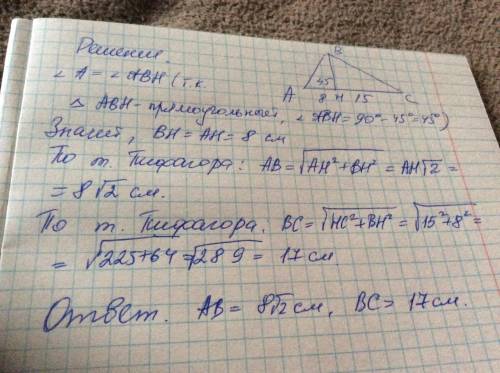 Решение.
∠A = ∠ABH (т.к.
△ ABH - прямоугольный, ∠ABH = 90° - 45° = 45°)
B
45
A 8 H 15 C
Значит, BH = AH = 8 см
По т. Пифагора: AB = √AH² + BH² = AH√2 =
= 8√2 см.
По т. Пифагора. BC = √HC² + BH² = √15² + 8² =
= √225 + 64 = √289 = 17 см.
Ответ. AB = 8√2 см, BC = 17 см.